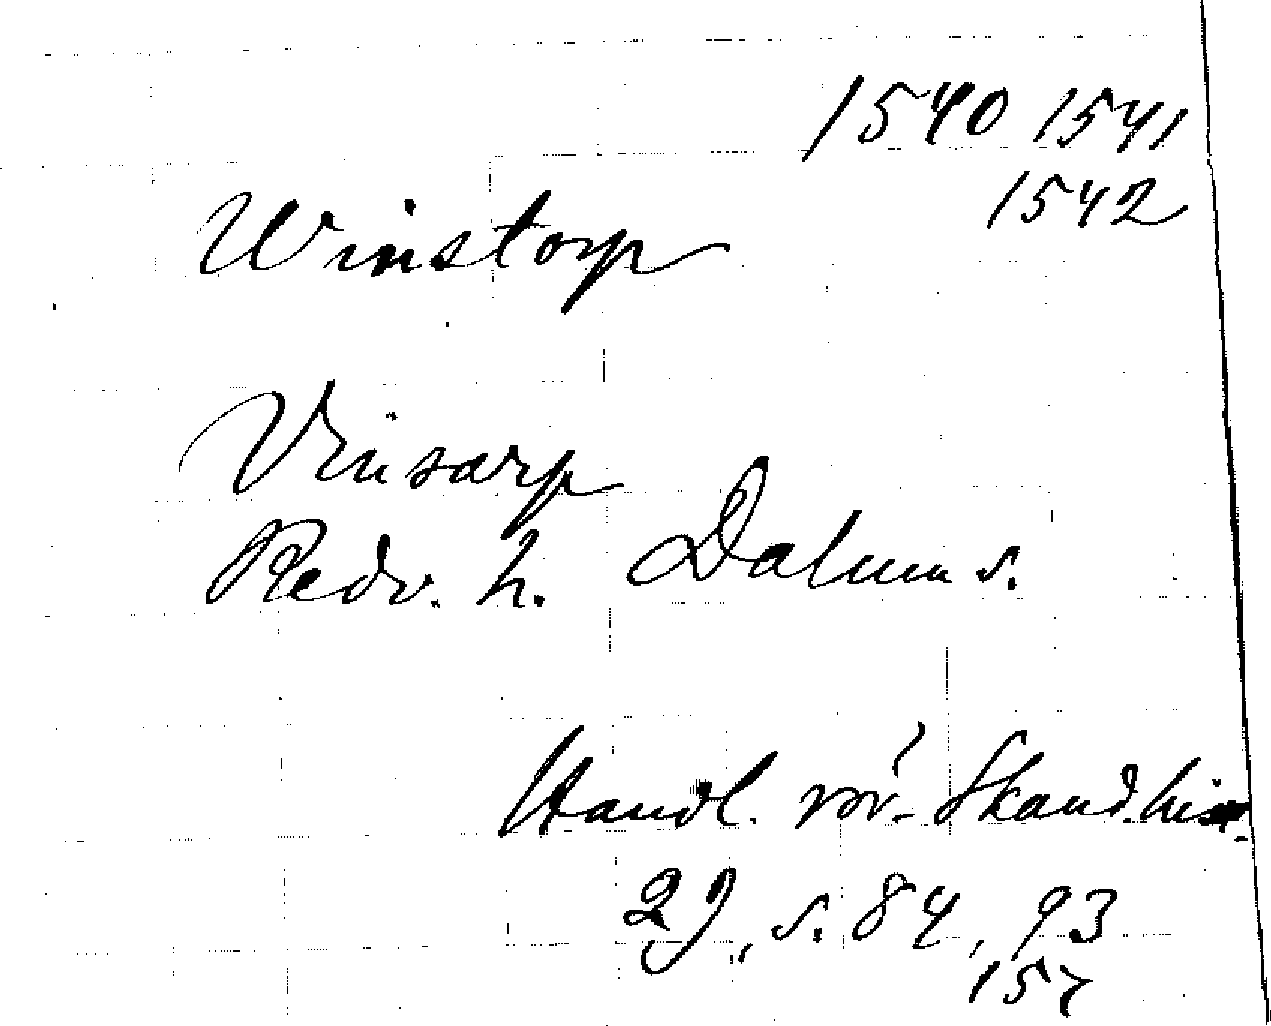 1540 1541
1542
Winstorp
Vinsarp
Redv. h. Dalum s.
Handl. rör. Skand. hist.
29, s. 84, 93
157